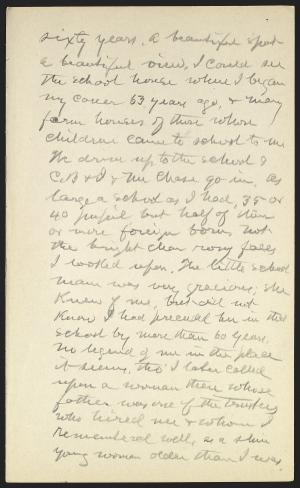 sixty years. A beautiful spot
a beautiful view, I could see
the school house where I began
my career 63 years ago, & many
farm houses of those whose
children came to school to me
We drove up to the school &
C.B. & I & Mr Chase go in. As
large a school as I had, 35 or
40 pupils but half of them
or more foreign born, not
the bright clean rosy faces
I looked upon. The little school
mam was very gracious; she
knew of me, but did not
know I had preceded her in that
school by more than 60 years.
No legend of me in the place
it seems, tho' I later called
upon a woman there whose
father was one of the trustees
who hired me & whom I
remembered well, as a slim
young woman older than I was.